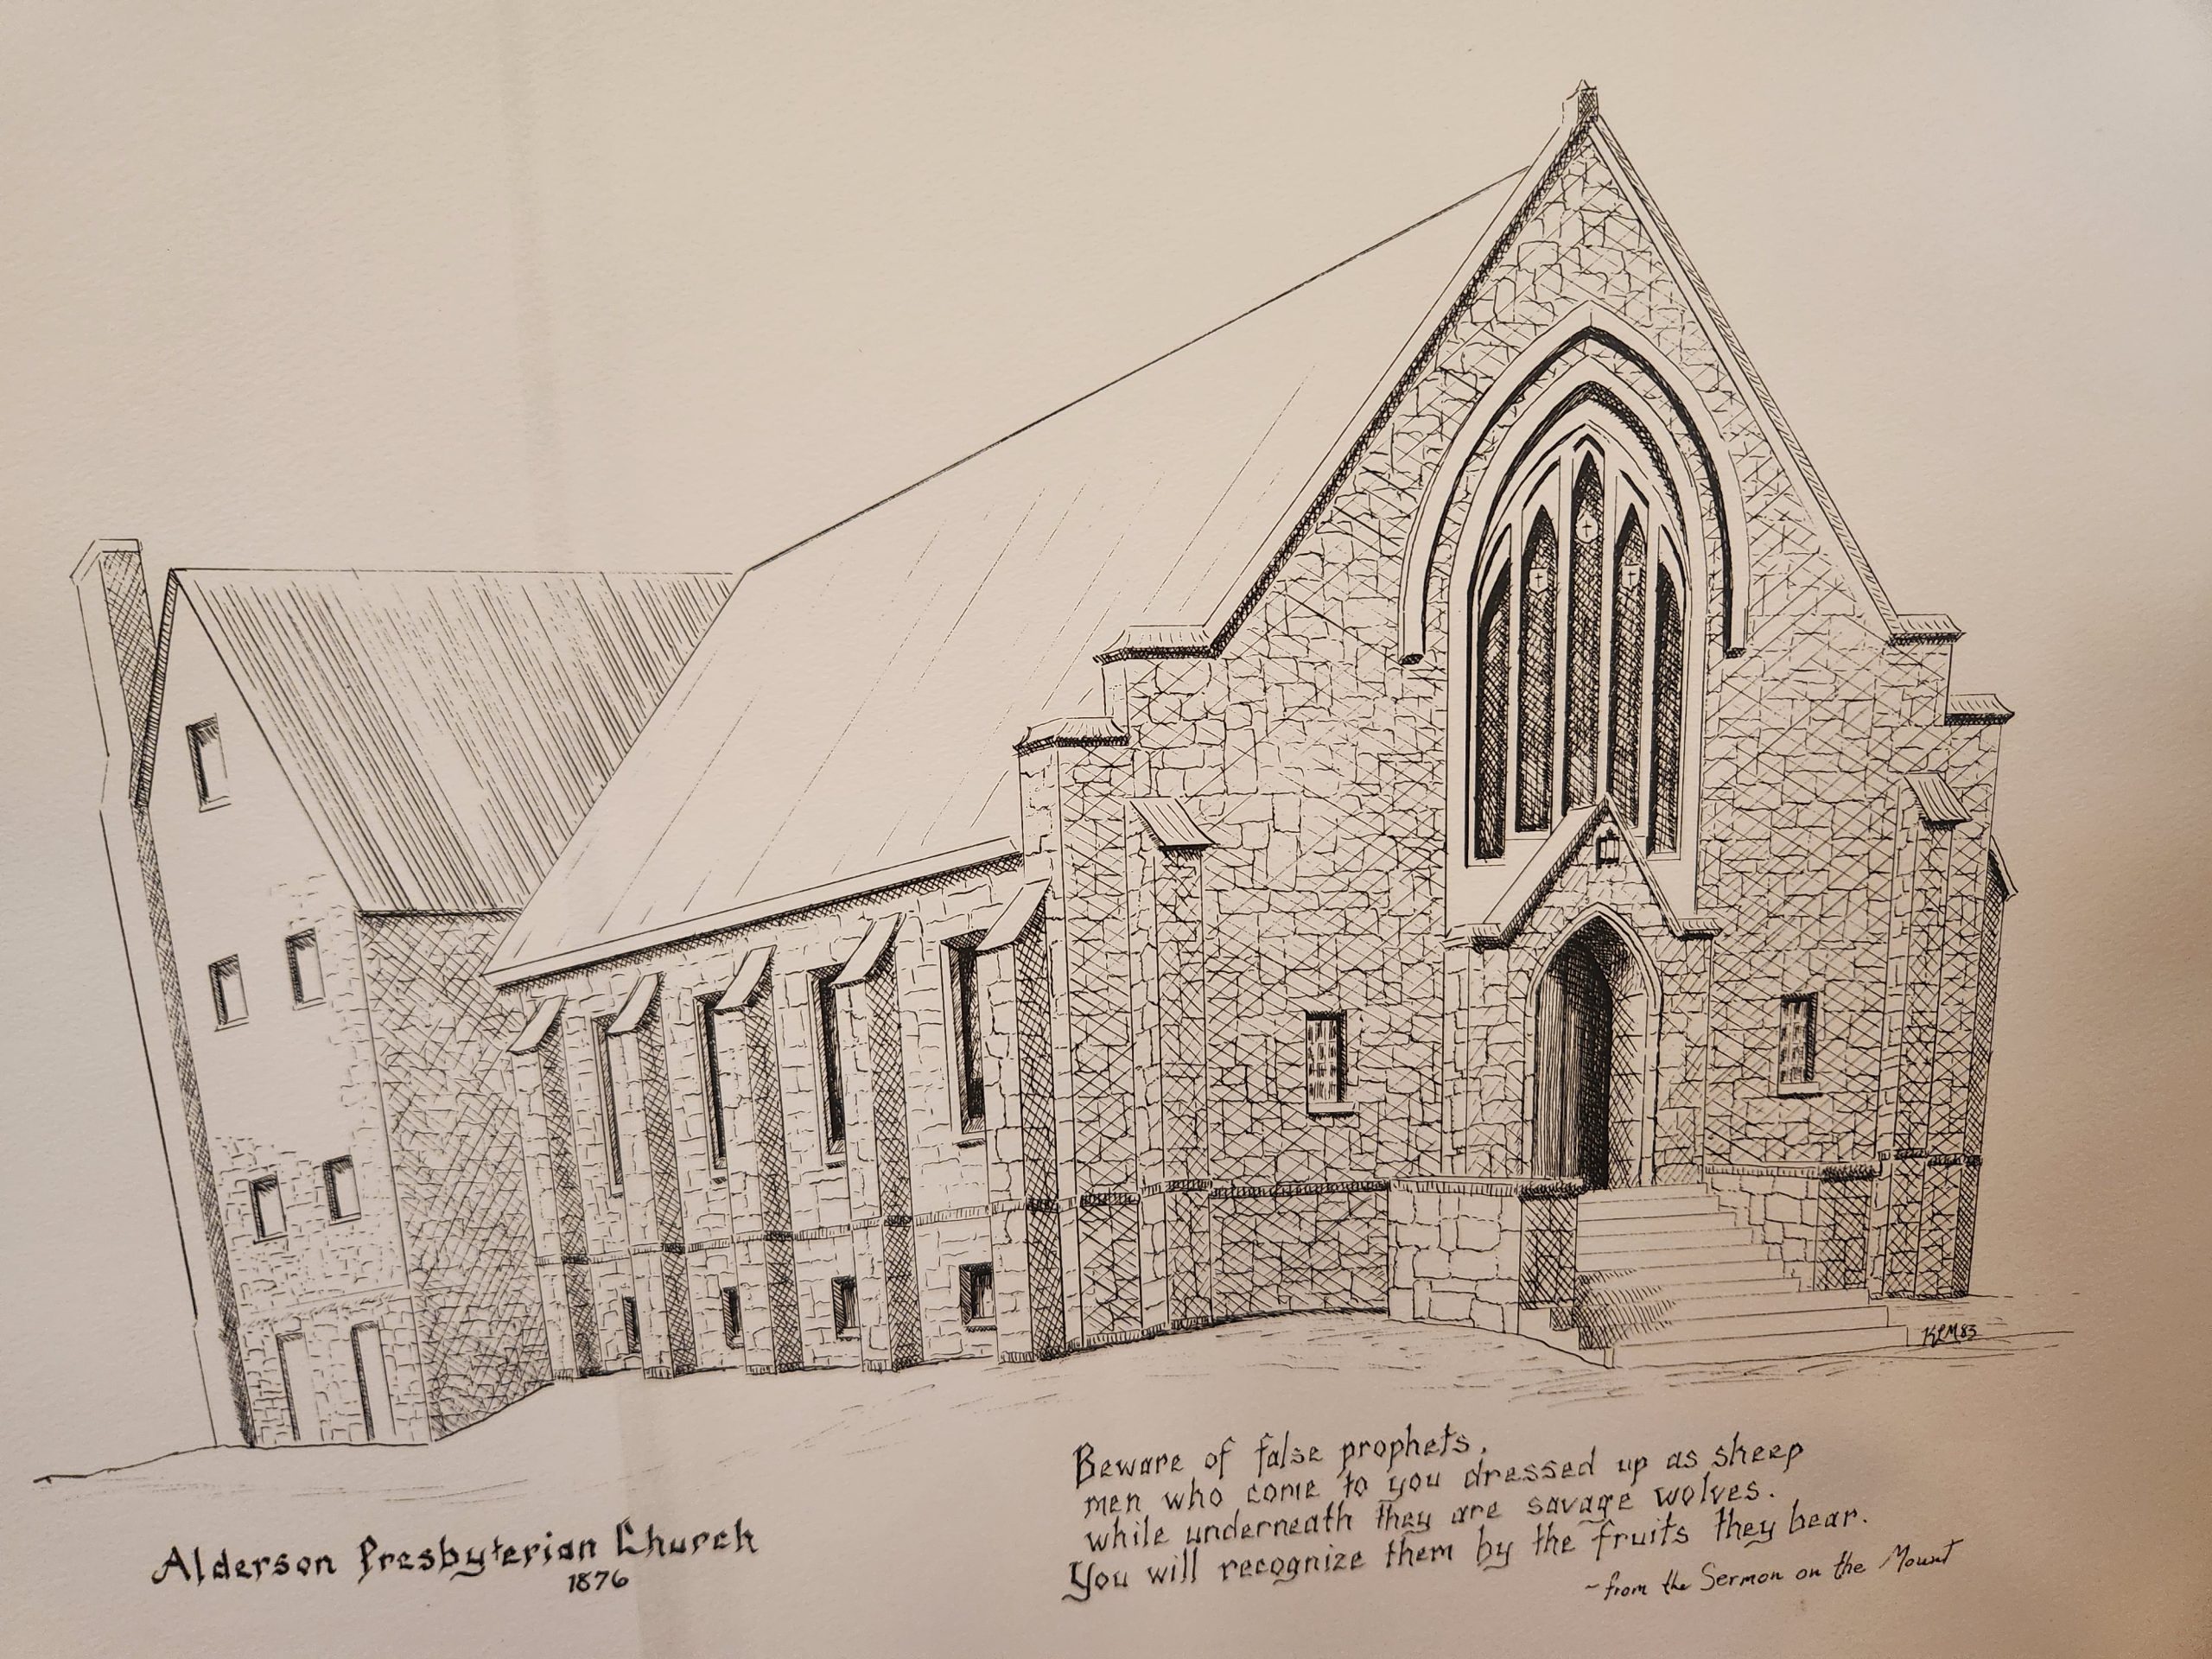 KLM 83
Beware of false prophets,
men who come to you dressed up as sheep
while underneath they are savage wolves.
You will recognize them by the fruits they bear.
~from the Sermon on the Mount
Alderson Presbyterian Church
1876